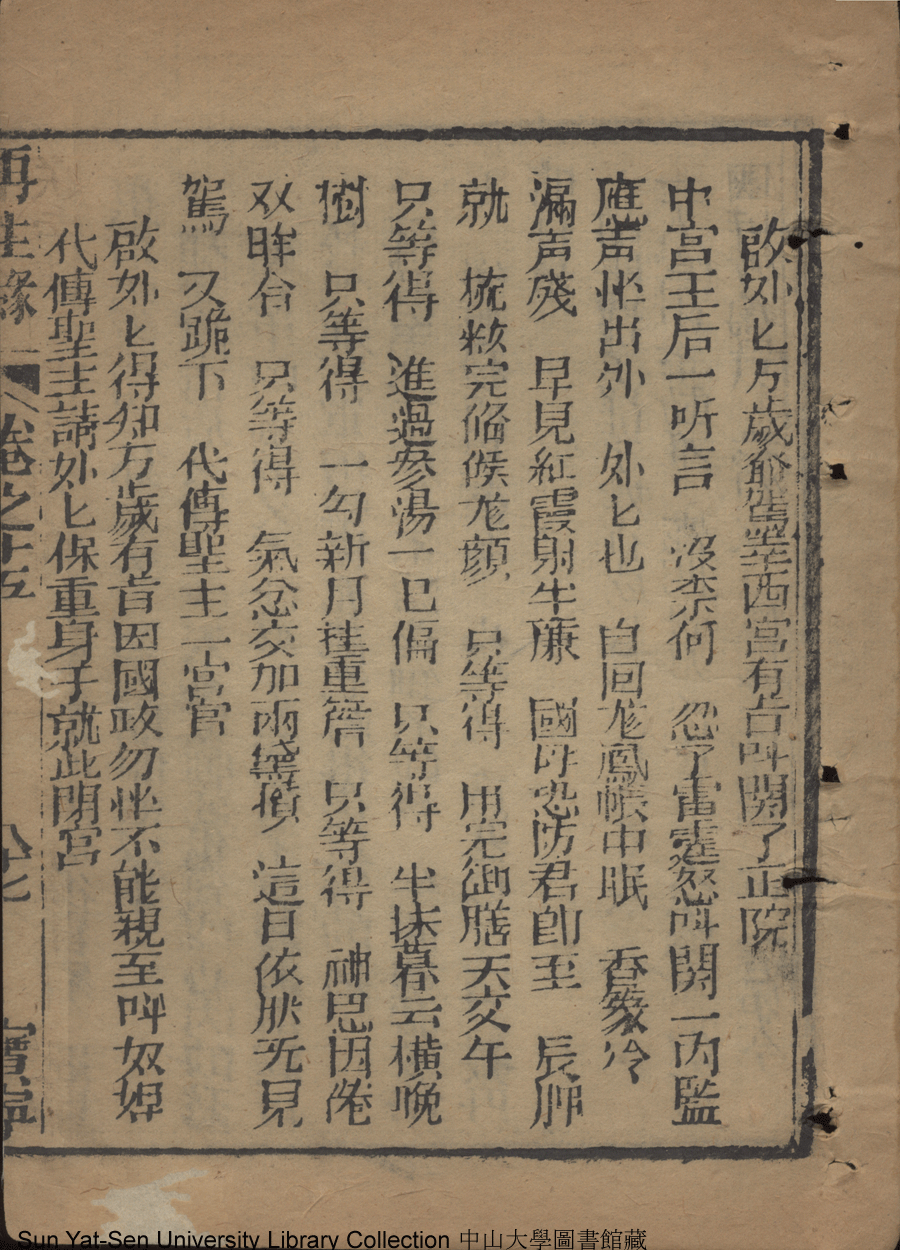 啟外匕万歲爺駕幸西宮有旨呌閉了正院
中宮王后一听言　没柰何　忽了雷霆怒呌開一內監
應声㘴出外　外匕也　自回龙鳳帳中眠　香篆冷
漏声殘　早見紅霞射牛簾　國母恐防君即至　辰卵
就　梳粧完俻候龙顔　只等得　用完御膳天交午
只等得　進過參湯一巳偏　只等得　半抹暮云横晚
樹　只等得　一勾新月挂重簷　只等得　神思因倦
双眸合　只等得　氣忿交加兩黛攅　這日依肰无見
駕　又跪下　代傳聖主一宮官
啟外匕得知万歲有旨因國政勿㘴不能親至呌奴婢
代傳聖主請外匕保重身子就此閉宮
再生緣　卷之十五　八十七　寶寧
Sun Yat-Sen University Library Collection 中山大學圖書館藏